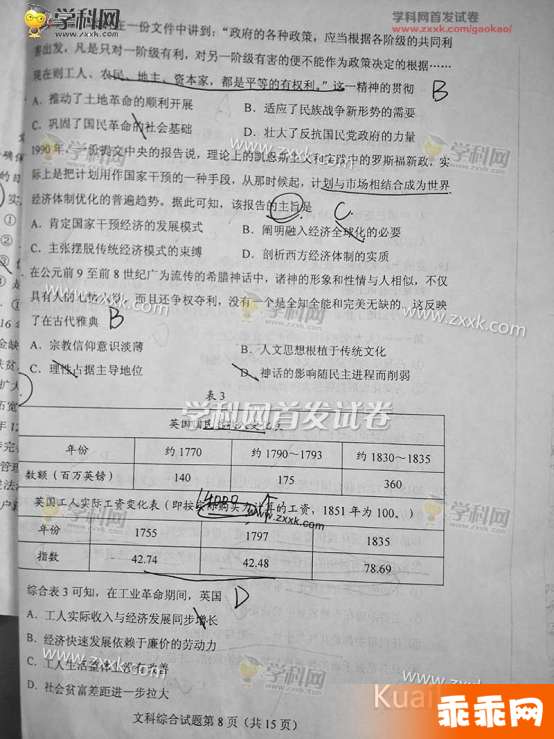 学科网首发试卷
www.zxxk.com/gaokao/
学科网
在一份文件中讲到：“政府的各种政策，应当根据各阶级的共同利
害出发，凡是只对一阶级有利，对另一阶级有害的便不能作为政策决定的根据……
现在则工人、农民、地主、资本家，都是平等的有权利。”这一精神的贯彻 B
A．推动了土地革命的顺利开展 B．适应了民族战争新形势的需要
C．巩固了国民革命的社会基础 D．壮大了反抗国民党政府的力量
1990年，一份提交中央的报告说，理论上的凯恩斯主义和实践中的罗斯福新政，实
际上是把计划用作国家干预的一种手段，从那时候起，计划与市场相结合成为世界
经济体制优化的普遍趋势。据此可知，该报告的主旨是 C
A．肯定国家干预经济的发展模式 B．阐明融入经济全球化的必要
C．主张摆脱传统经济模式的束缚 D．剖析西方经济体制的实质
在公元前9至前8世纪广为流传的希腊神话中，诸神的形象和性情与人相似，不仅
具有人的 而且还争权夺利，没有一个是全知全能和完美无缺的。这反映
了在古代雅典 B
A．宗教信仰意识淡薄 B．人文思想根植于传统文化
C．理性占据主导地位 D．神话的影响随民主进程而削弱
表3
学科网首发试卷
英国国民
年份 约1770 约1790～1793 约1830～1835
数额（百万英镑） 140 175 360
英国工人实际工资变化表（即按实际购买力计算的工资，1851年为100。）
年份 1755 1797 1835
指数 42.74 42.48 78.69
综合表3可知，在工业革命期间，英国 D
A．工人实际收入与经济发展同步增长
B．经济快速发展依赖于廉价的劳动力
C．工人生活整体上有改善
D．社会贫富差距进一步拉大
文科综合试题第8页（共15页）
学科网
www.zxxk.com
乖乖网